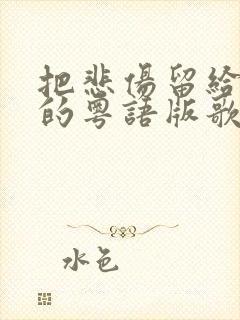 把悲傷留給
的粵語版歌
水色